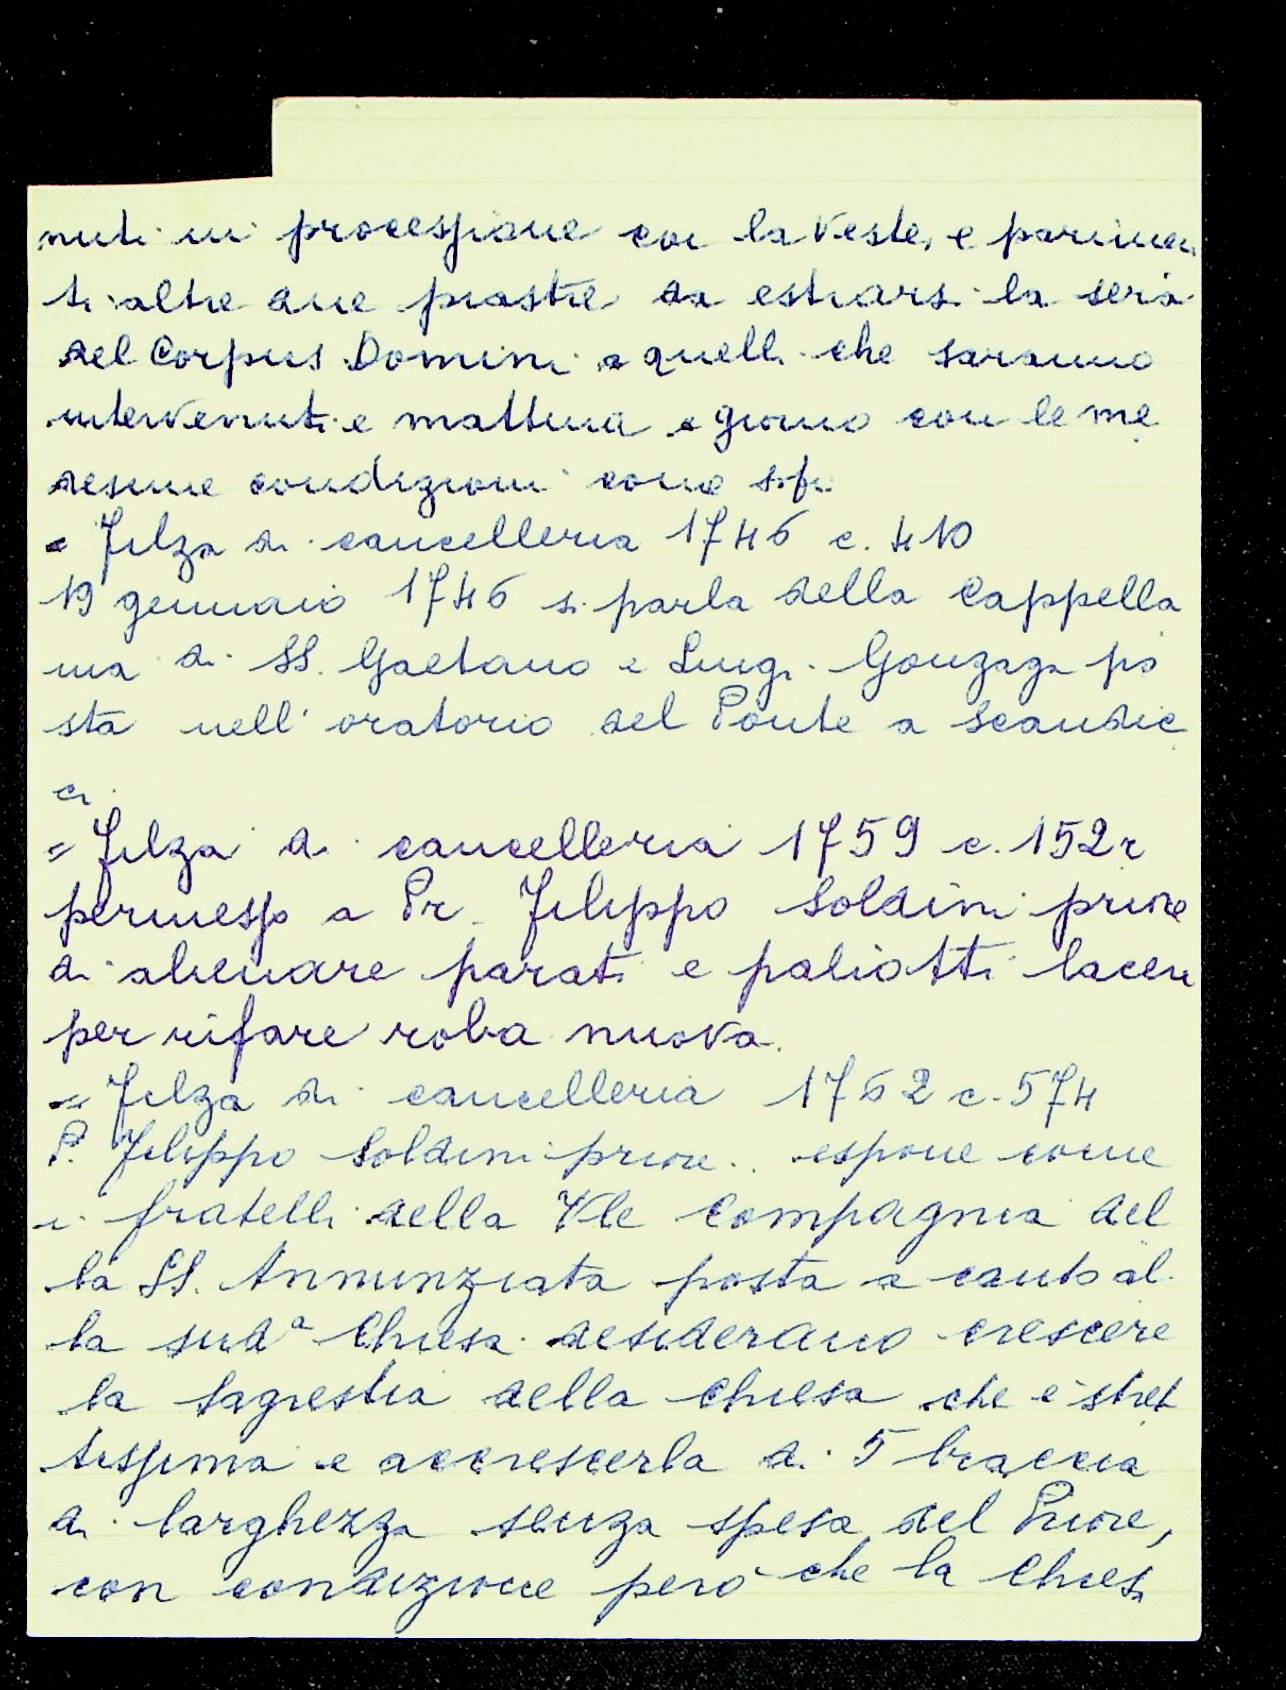 nuti in processione con la veste, e parimen
ti altre due piastre da estrarsi la sera
del Corpus Domini a quelli che saranno
intervenuti e mattina e giorno con le me
desime condizioni come
= Filza di cancelleria 1746 c. 410
19 gennaio 1746 si parla della Cappella
nia di SS. Gaetano e Luigi Gonzaga po
sta nell'oratorio del Ponte a Scandic
ci.
= Filza di cancelleria 1759 c. 152r
permesso a Pr. Filippo Soldini priore
di alienare parati e paliotti laceri
per rifare roba nuova.
= Filza di cancelleria 1762 c. 574
P. Filippo Soldini priore.. espone come
i fratelli della Vle Compagnia del
la SS. Annunziata posta a canto al
la sudª Chiesa desiderano crescere
la sagrestia della chiesa che è stret
tissima e accrescerla di 5 braccia
di larghezza senza spesa del Priore,
con condizione però che la Chiesa